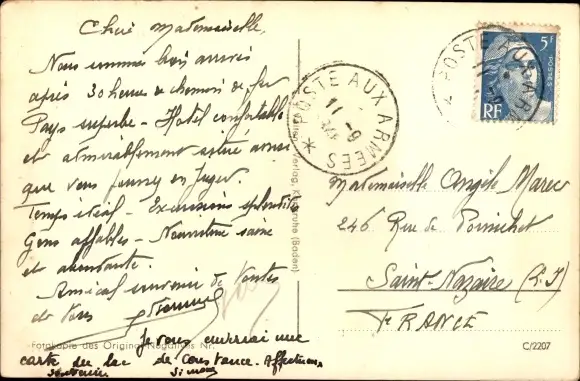 Chère Mademoiselle,
Nous sommes bien arrivés
après 30 heures de chemin de fer
Pays superbe - Hotel confortable
et admirablement situé ainsi
que vous pourrez en juger.
Temps idéal - Excursions splendides
Gens affables - Nourriture saine
et abondante.
Amical souvenir de Nantes
de Vous
Je vous enverrai une
carte du lac de Constance. Affectueux
souvenir Simone
Fotokopie des Original-Negatives Nr.
Verlag, Karlsruhe (Baden)
POSTE AUX ARMÉES
11
POSTE AUX ARM
5F
POSTES
RF
Mademoiselle Angèle Marec
246 Rue de Pornichet
Saint-Nazaire (L.I)
FRANCE
C/2207